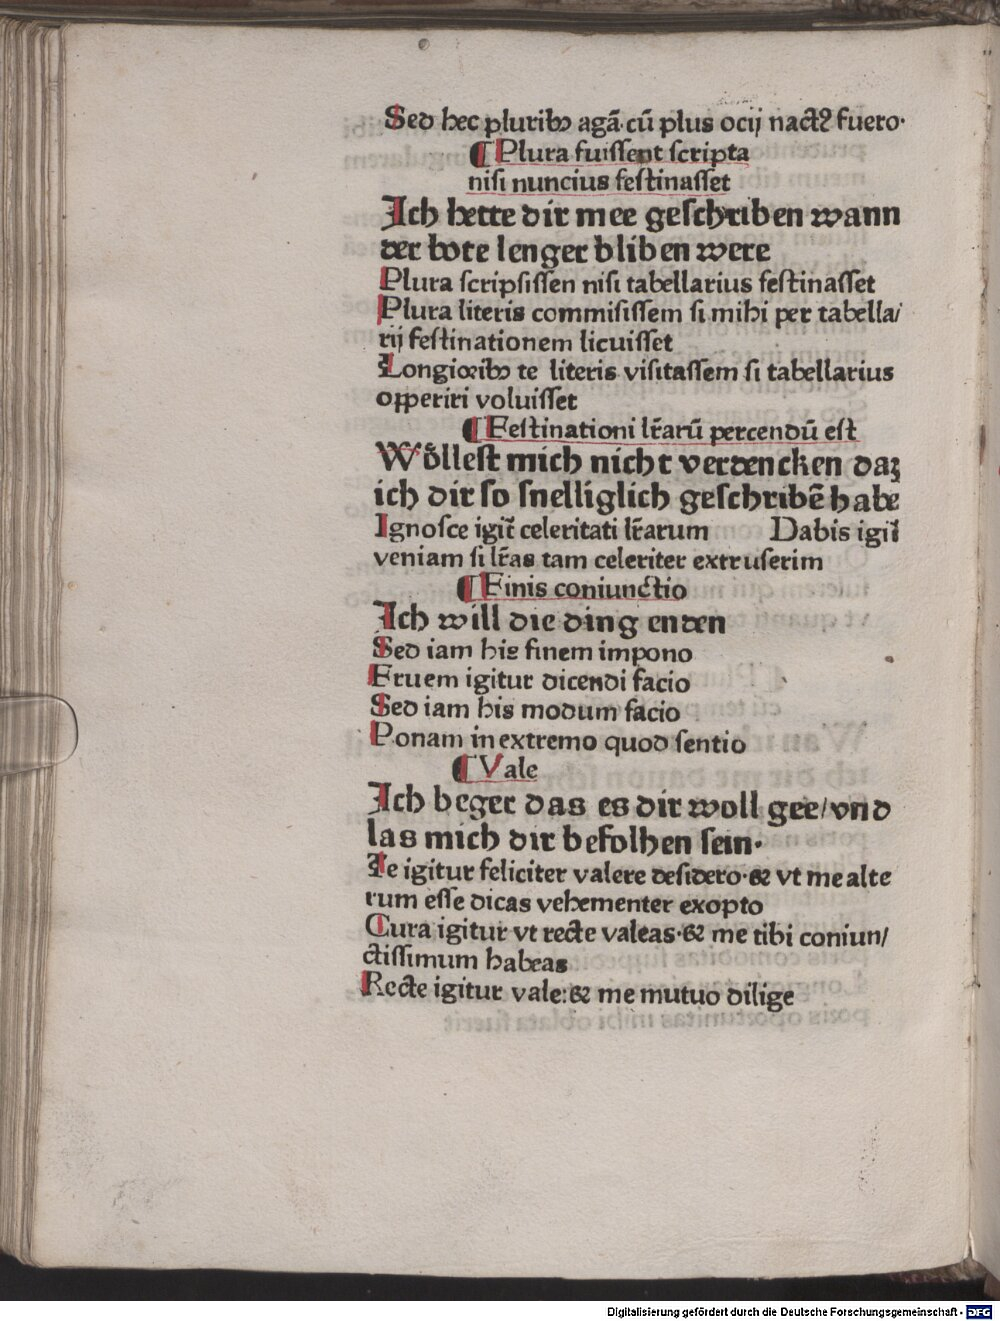 Sed hec pluribꝫ agā·cū plus ocij nactꝰ fuero·
¶ Plura fuiſſent ſcripta
niſi nuncius feſtinaſſet
Ich hette dir mee geſchriben wann
der bote lenger bliben were
Plura ſcripſiſſen niſi tabellarius feſtinaſſet
Plura literis commiſiſſem ſi mihi per tabella/
rij feſtinationem licuiſſet
Longioribꝫ te literis viſitaſſem ſi tabellarius
opperiri voluiſſet
¶ Feſtinationi lr̄arū percendū eſt
Woͤlleſt mich nicht verdencken daz
ich dir ſo ſnelliglich geſchribē habe
Ignoſce igit̄ celeritati lr̄arum Dabis igit̄
veniam ſi lr̄as tam celeriter extruſerim
¶ Finis coniunctio
Ich will die ding enden
Sed iam his finem impono
Fruem igitur dicendi facio
Sed iam his modum facio
Ponam in extremo quod ſentio
¶ Vale
Ich beger das es dir woll gee/vnd
las mich dir befolhen ſein·
Te igitur feliciter valere deſidero·& vt me alte
rum eſſe dicas vehementer exopto
Cura igitur vt recte valeas·& me tibi coniun/
ctiſſimum habeas
Recte igitur vale:& me mutuo dilige
Digitalisierung gefördert durch die Deutsche Forschungsgemeinschaft - DFG